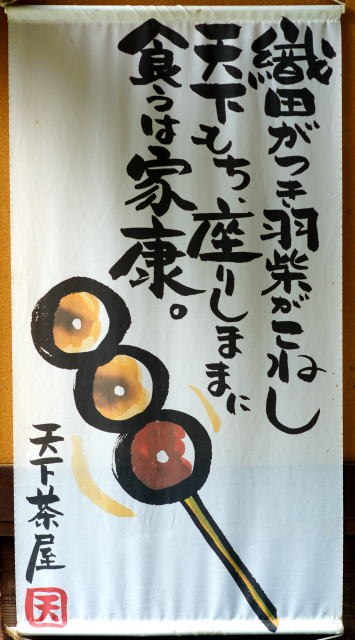 織田がつき羽柴がこねし
天下もち、座りしままに
食うは家康。
天下茶屋
天